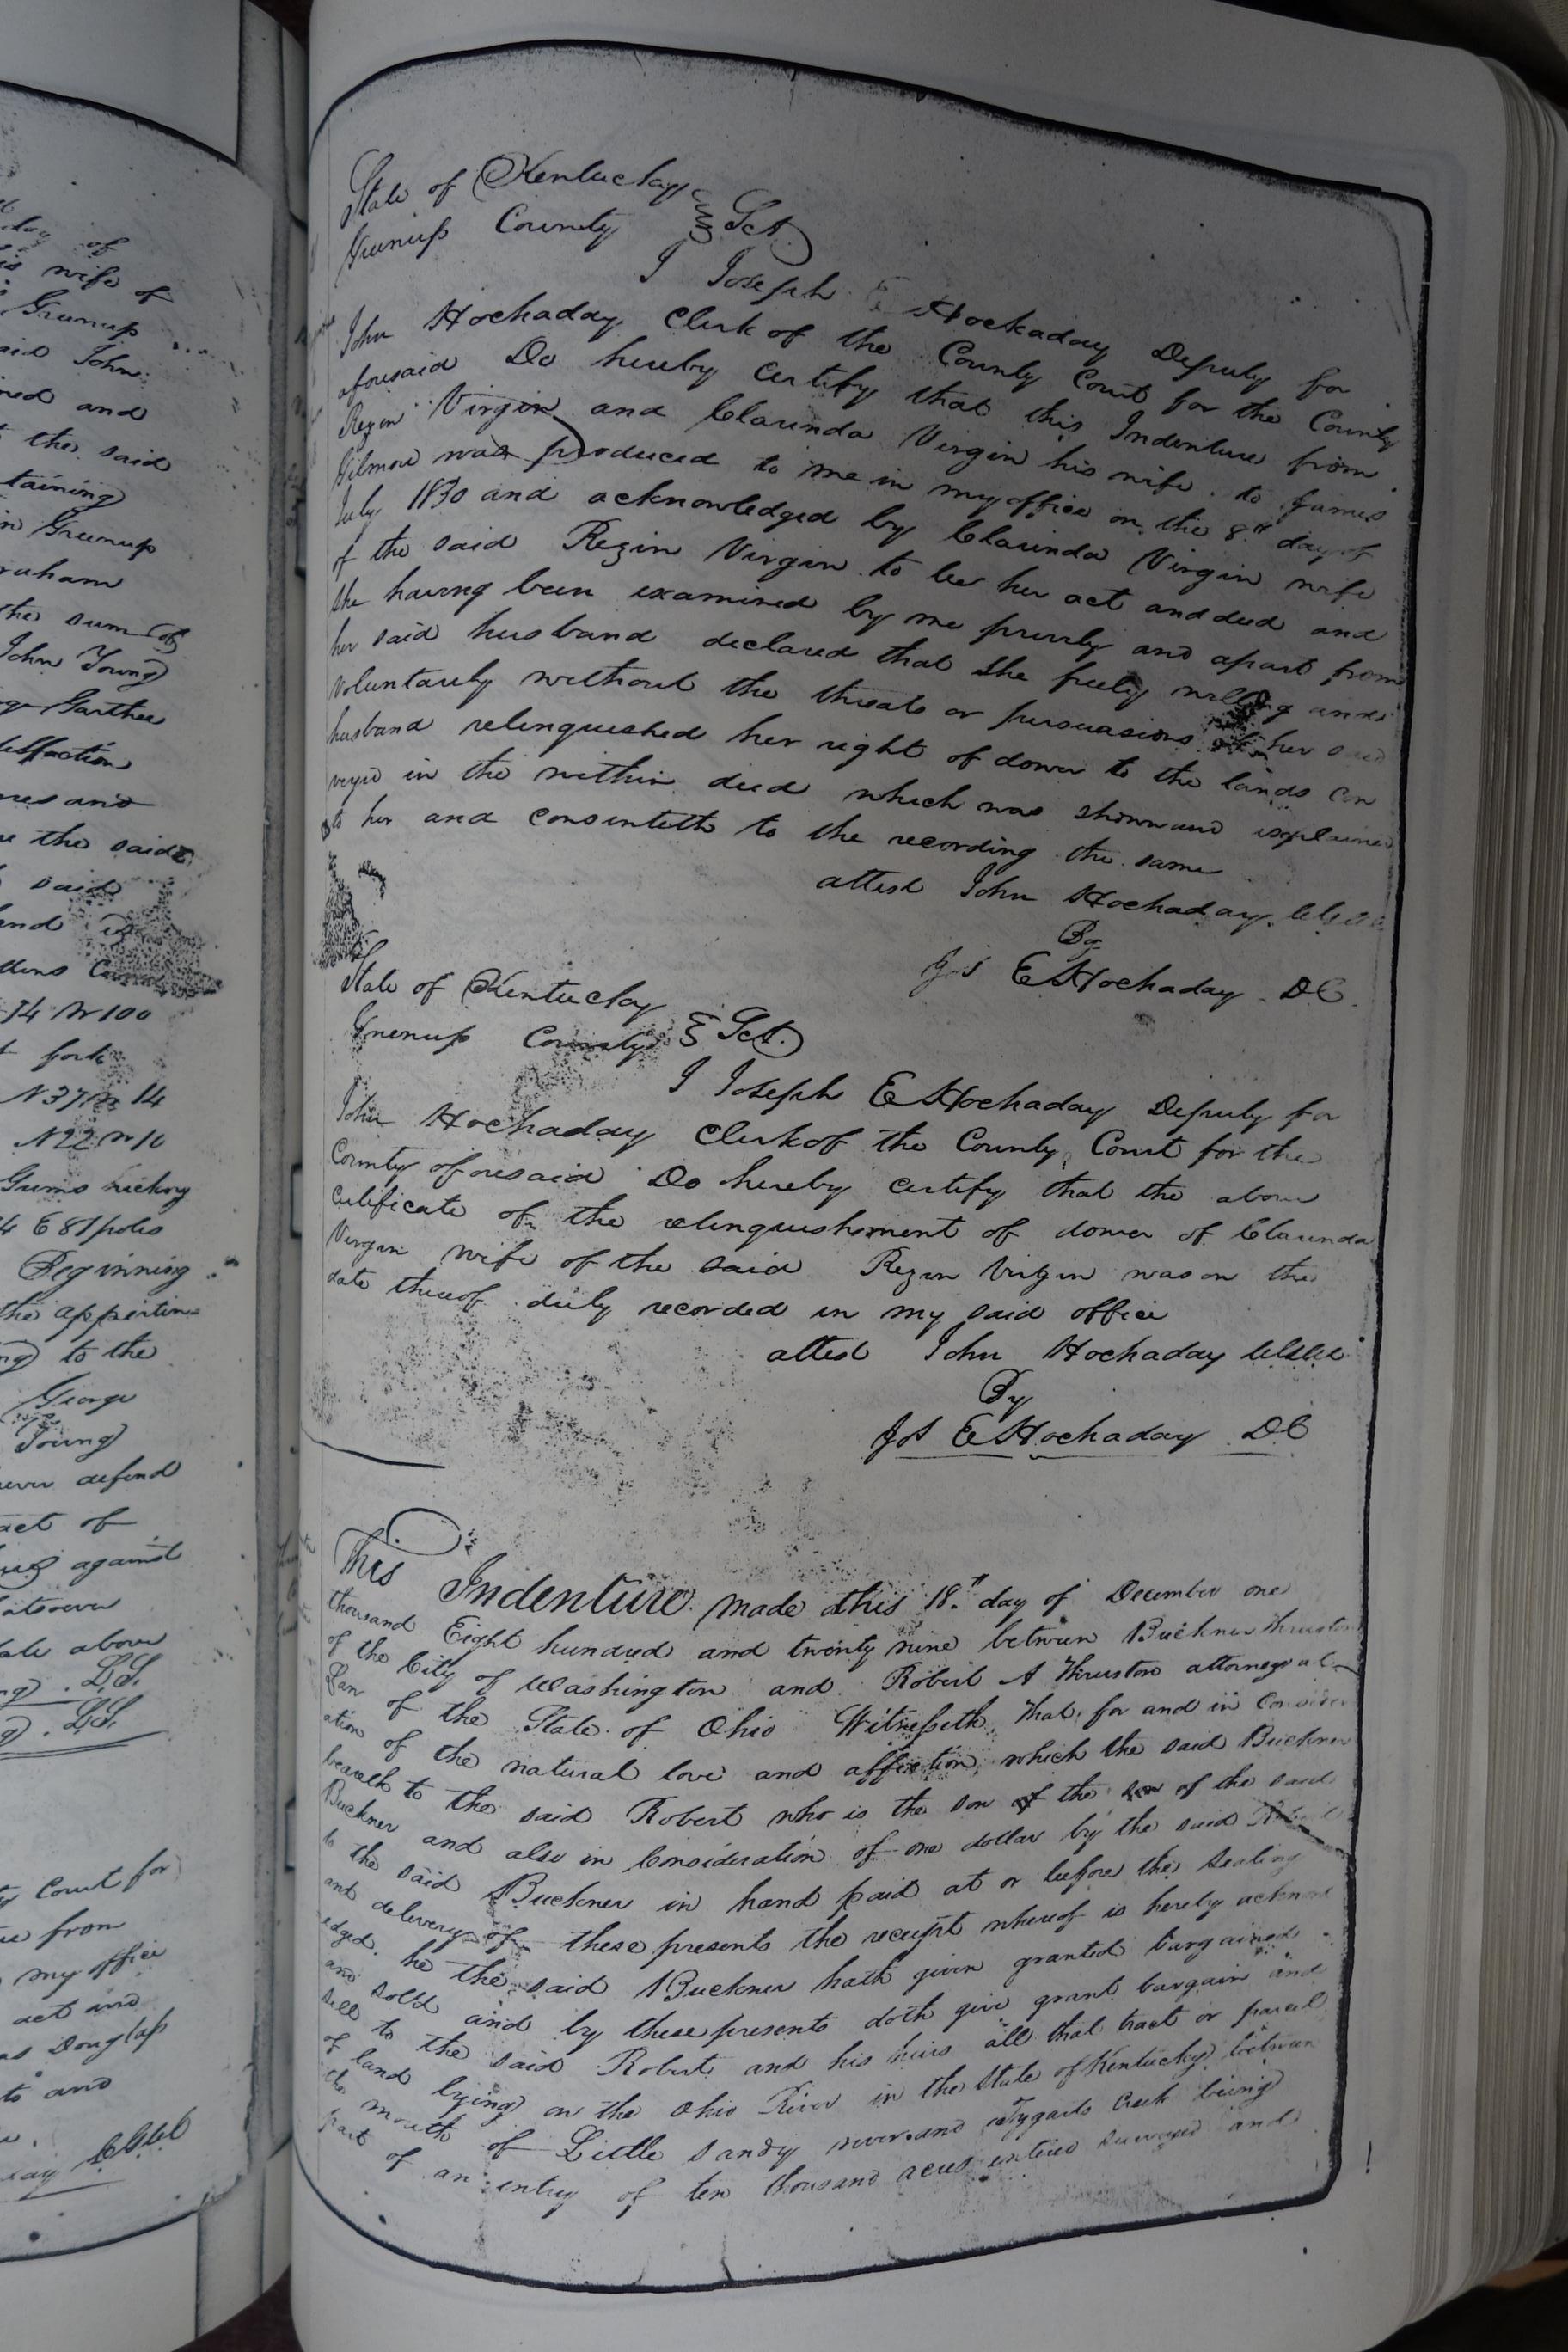 day of
is wife of
Greenup
aid John
ned and
the said
taining
in Greenup
raham
the sum of
John Young
Garthee
tisffaction
res and
the said
said
and
14 W 100
fork
N 37 W 14
N 22 W 10
Gums hickory
4 E 81 poles
Beginning
the appertin
ng to the
George
Young
ever defend
act of
against
atsoever
ate above
ng. L.S.
g. L.S.
ty Court for
re from
my office
act and
as Douglass
to and
ay
State of Kentucky
Greenup County Sct.
I Joseph E Hockaday Deputy for
John Hockaday Clerk of the County Court for the County
aforesaid Do hereby certify that this Indenture from
Rezin Virgin and Clarinda Virgin his wife to James
Gilmore was produced to me in my office on the 8th day of
July 1830 and acknowledged by Clarinda Virgin wife
of the said Rezin Virgin to be her act and deed and
she having been examined by me privily and apart from
her said husband declared that she freely willing and
voluntarily without the threats or persuasions of her said
husband relinquished her right of dower to the lands con
veyed in the within deed which was shown and explained
to her and consenteth to the recording the same
attest John Hockaday
By
Jos E Hockaday DC.
State of Kentucky
Greenup County Sct.
I Joseph E Hockaday Deputy for
John Hockaday Clerk of the County Court for the
County aforesaid Do hereby certify that the above
certificate of the relinquishment of dower of Clarinda
Virgin wife of the said Rezin Virgin was on the
date thereof duly recorded in my said office
attest John Hockaday
By
Jos E Hockaday DC
This Indenture made this 18th day of December one
thousand Eight hundred and twenty nine between Buckner Thruston
of the City of Washington and Robert A Thruston attorney at
Law of the State of Ohio Witnesseth That for and in Consider
ation of the natural love and affection which the said Buckner
beareth to the said Robert who is the son of the son of the said
Buckner and also in Consideration of one dollar by the said Robert
to the said Buckner in hand paid at or before the sealing
and delivery of these presents the receipt whereof is hereby acknow
edged. he the said Buckner hath given granted bargained
and sold and by these presents doth give grant bargain and
sell to the said Robert and his heirs all that tract or parcel
of land lying on the Ohio River in the State of Kentucky between
the mouth of Little Sandy river and Tygarts Creek being
part of an entry of ten thousand acres entered surveyed and